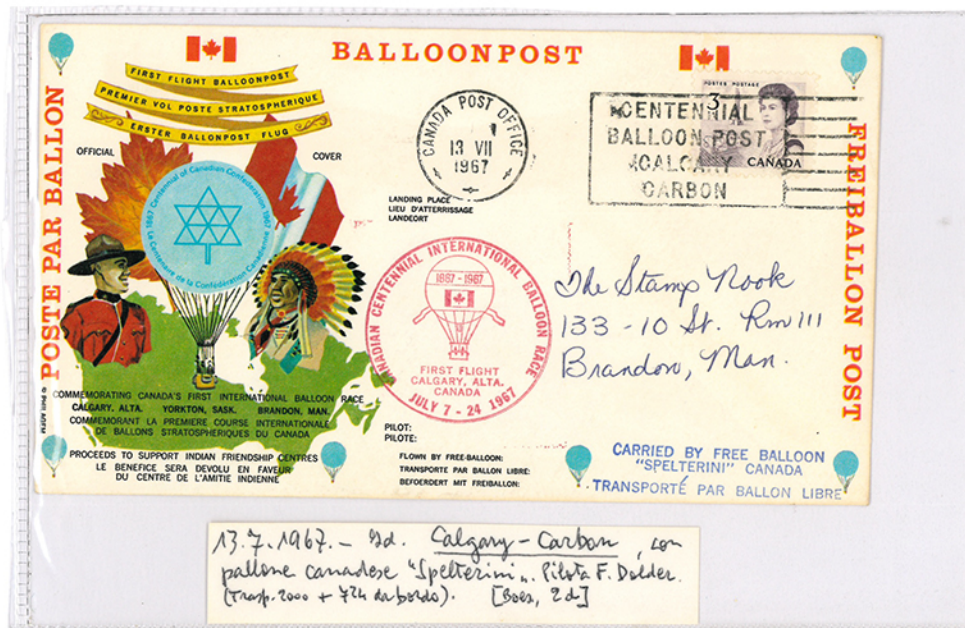 BALLOONPOST
POSTE PAR BALLON
FREIBALLON POST
FIRST FLIGHT BALLOONPOST
PREMIER VOL POSTE STRATOSPHERIQUE
ERSTER BALLONPOST FLUG
OFFICIAL
COVER
1867 Centennial of Canadian Confederation 1967
Le Centenaire de la Confédération Canadienne
CANADA POST OFFICE
13 VII
1967
POSTES POSTAGE
3
CANADA
CENTENNIAL
BALLOON POST
CALGARY
CARBON
LANDING PLACE
LIEU D'ATTERRISSAGE
LANDEORT
CANADIAN CENTENNIAL INTERNATIONAL BALLOON RACE
1867-1967
FIRST FLIGHT
CALGARY, ALTA.
CANADA
JULY 7 - 24 1967
The Stamp Nook
133 - 10 St. Rm 111
Brandon, Man.
COMMEMORATING CANADA'S FIRST INTERNATIONAL BALLOON RACE
CALGARY, ALTA. YORKTON, SASK. BRANDON, MAN.
COMMEMORANT LA PREMIERE COURSE INTERNATIONALE
DE BALLONS STRATOSPHERIQUES DU CANADA
PROCEEDS TO SUPPORT INDIAN FRIENDSHIP CENTRES
LE BENEFICE SERA DEVOLU EN FAVEUR
DU CENTRE DE L'AMITIE INDIENNE
PILOT:
PILOTE:
FLOWN BY FREE-BALLOON:
TRANSPORTE PAR BALLON LIBRE:
BEFOERDERT MIT FREIBALLON:
CARRIED BY FREE BALLOON
"SPELTERINI" CANADA
TRANSPORTÉ PAR BALLON LIBRE
13.7.1967.- 2d. Calgary-Carbon, con
pallone canadese "Spelterini". Pilota F. Dolder.
(Trasp. 2000 + 724 da bordo). [Boes, 2d]